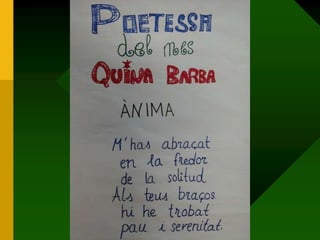 POETESSA
del mes
QUINA BARBA
ÀNIMA
M'has abraçat
en la fredor
de la solitud.
Als teus braços
hi he trobat
pau i serenitat.